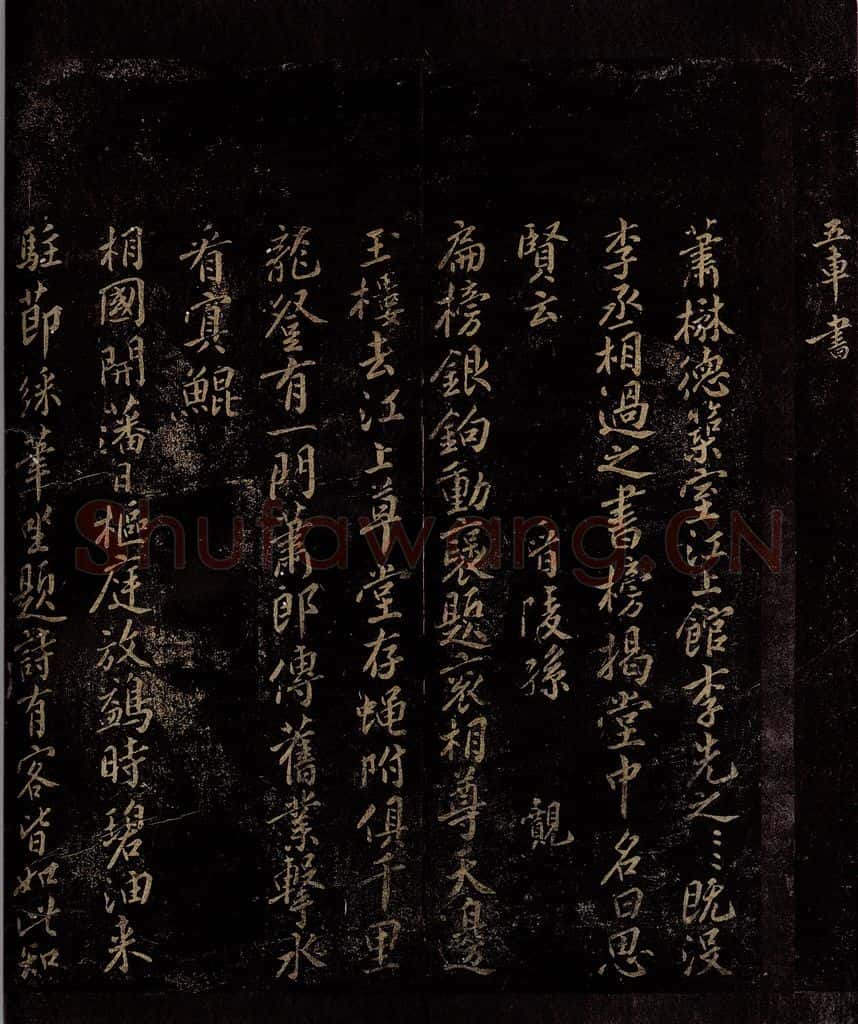 五車書
蕭楙德築室江上館李先之〻〻既没
李丞相過之書榜揭堂中名曰思
賢云 晉陵孫 覿
扁榜銀鉤動 題 相尊天邊
玉樓去江上草堂存蠅附俱千里
龍登有一門蕭郎傳舊業擊水
看寘鯤
相國開藩日樞庭放鷁時碧油来
駐節綵筆坐題詩有客皆如此知
Shufawang.CN